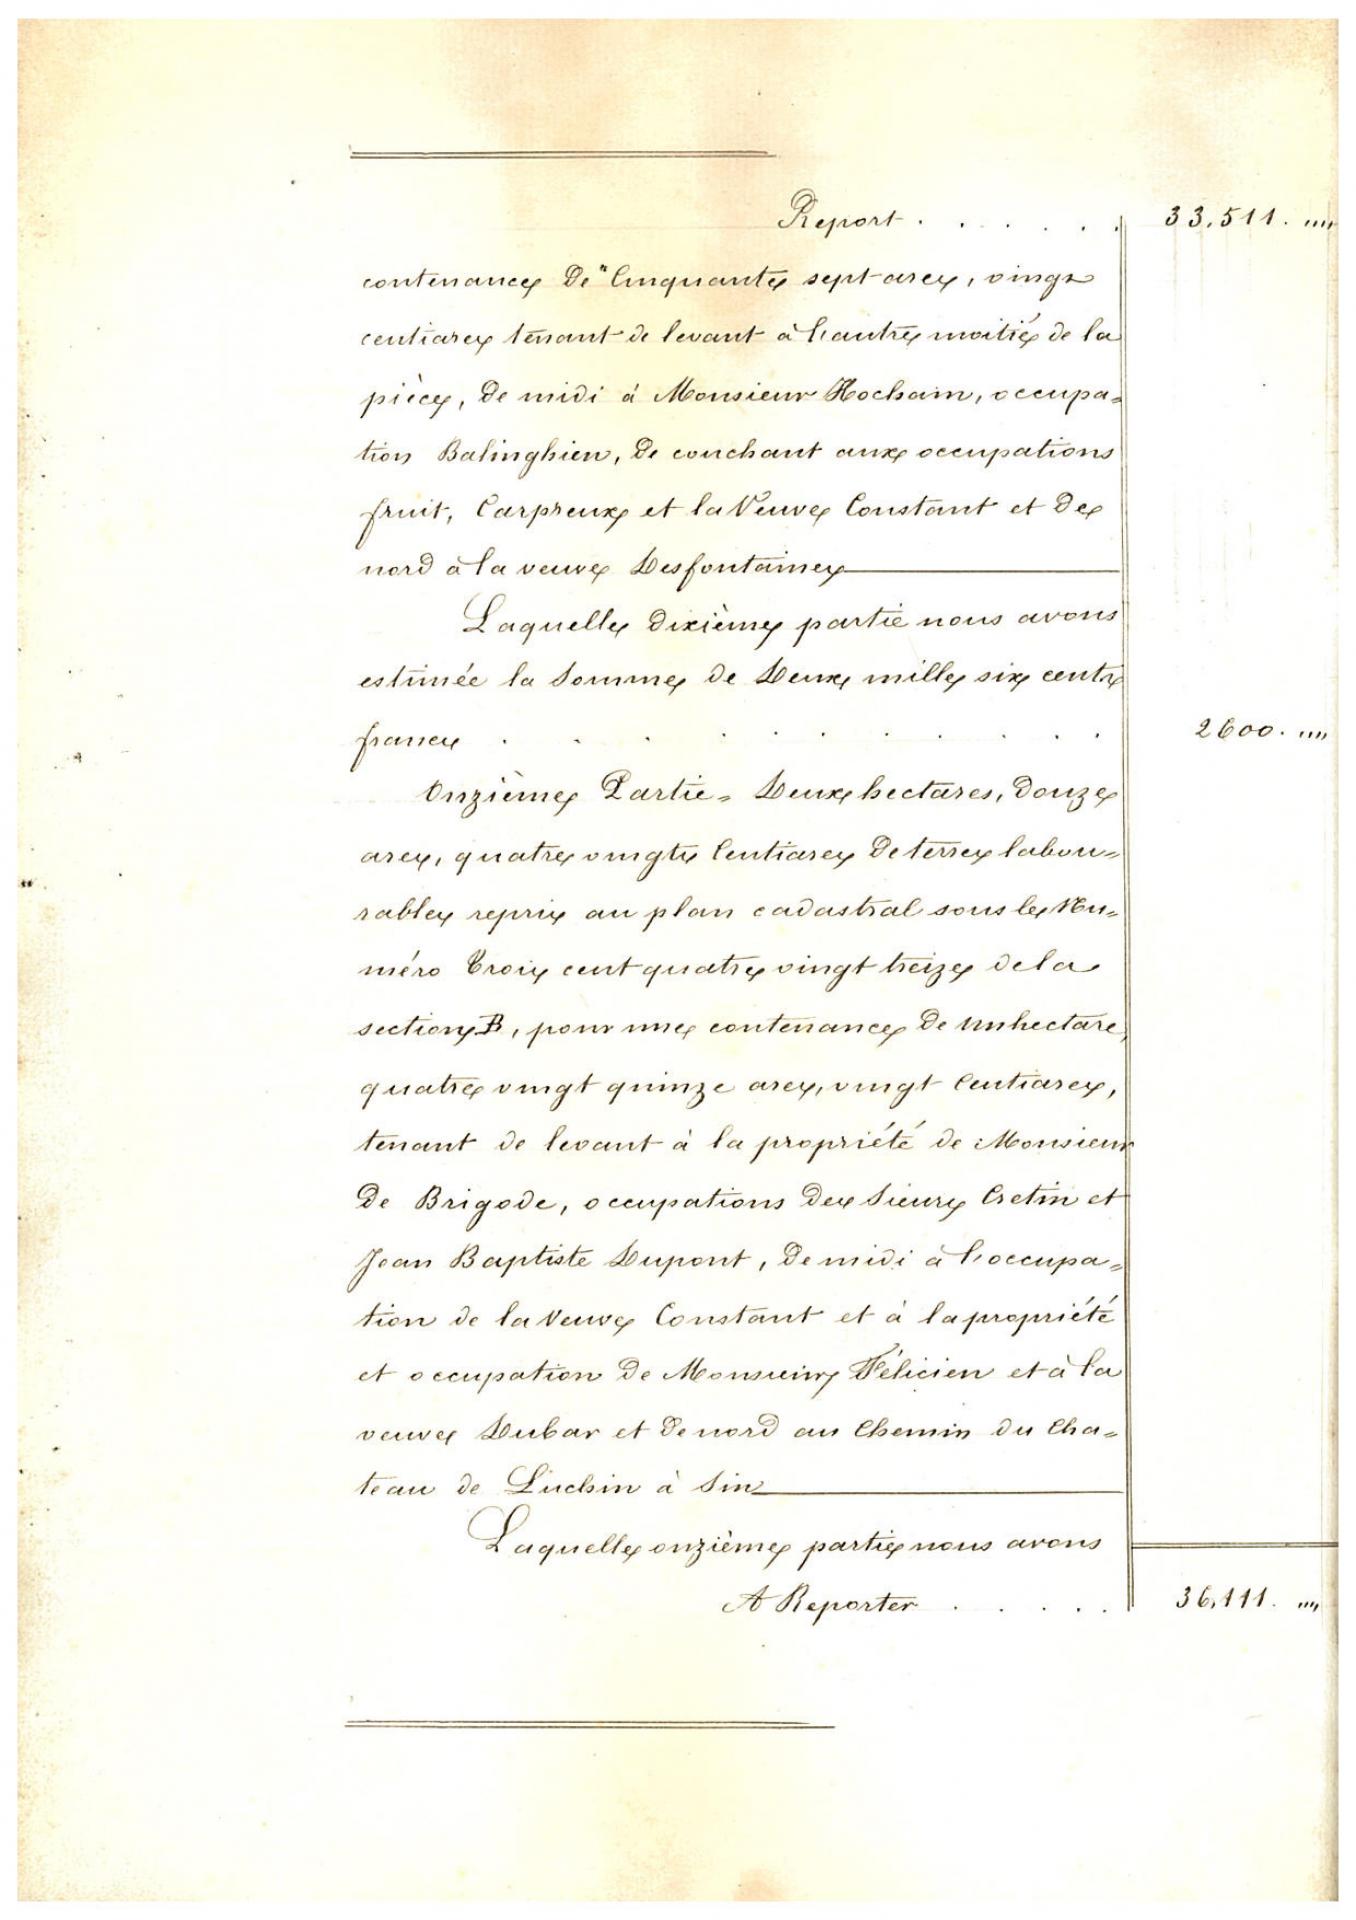 Report . . . . . . 33,511. ""
contenance de "Cinquante sept ares, vingt
centiares tenant de levant à l'autre moitié de la
pièce, de midi à Monsieur Hochain, occupa=
tion Balinghien, de couchant aux occupations
fruit, Carpreux et la Veuve Constant et de
nord à la veuve Desfontaines
Laquelle dixième partie nous avons
estimée la somme de Deux mille six cents
francs . . . . . . . . . 2600. ""
Onzième Partie = Deux hectares, douze
ares, quatre vingts Centiares de terres labou=
rables repris au plan cadastral sous le Nu=
méro Trois cent quatre vingt treize de la
section B, pour une contenance de un hectare,
quatre vingt quinze ares, vingt Centiares,
tenant de levant à la propriété de Monsieur
De Brigode, occupations des Sieurs Cretin et
Jean Baptiste Dupont, de midi à l'occupa=
tion de la Veuve Constant et à la propriété
et occupation de Monsieur Félicien et à la
veuve Dubar et de nord au Chemin du Cha=
teau de Luchin à Sin
Laquelle onzième partie nous avons
A Reporter . . . . . 36,111. ""